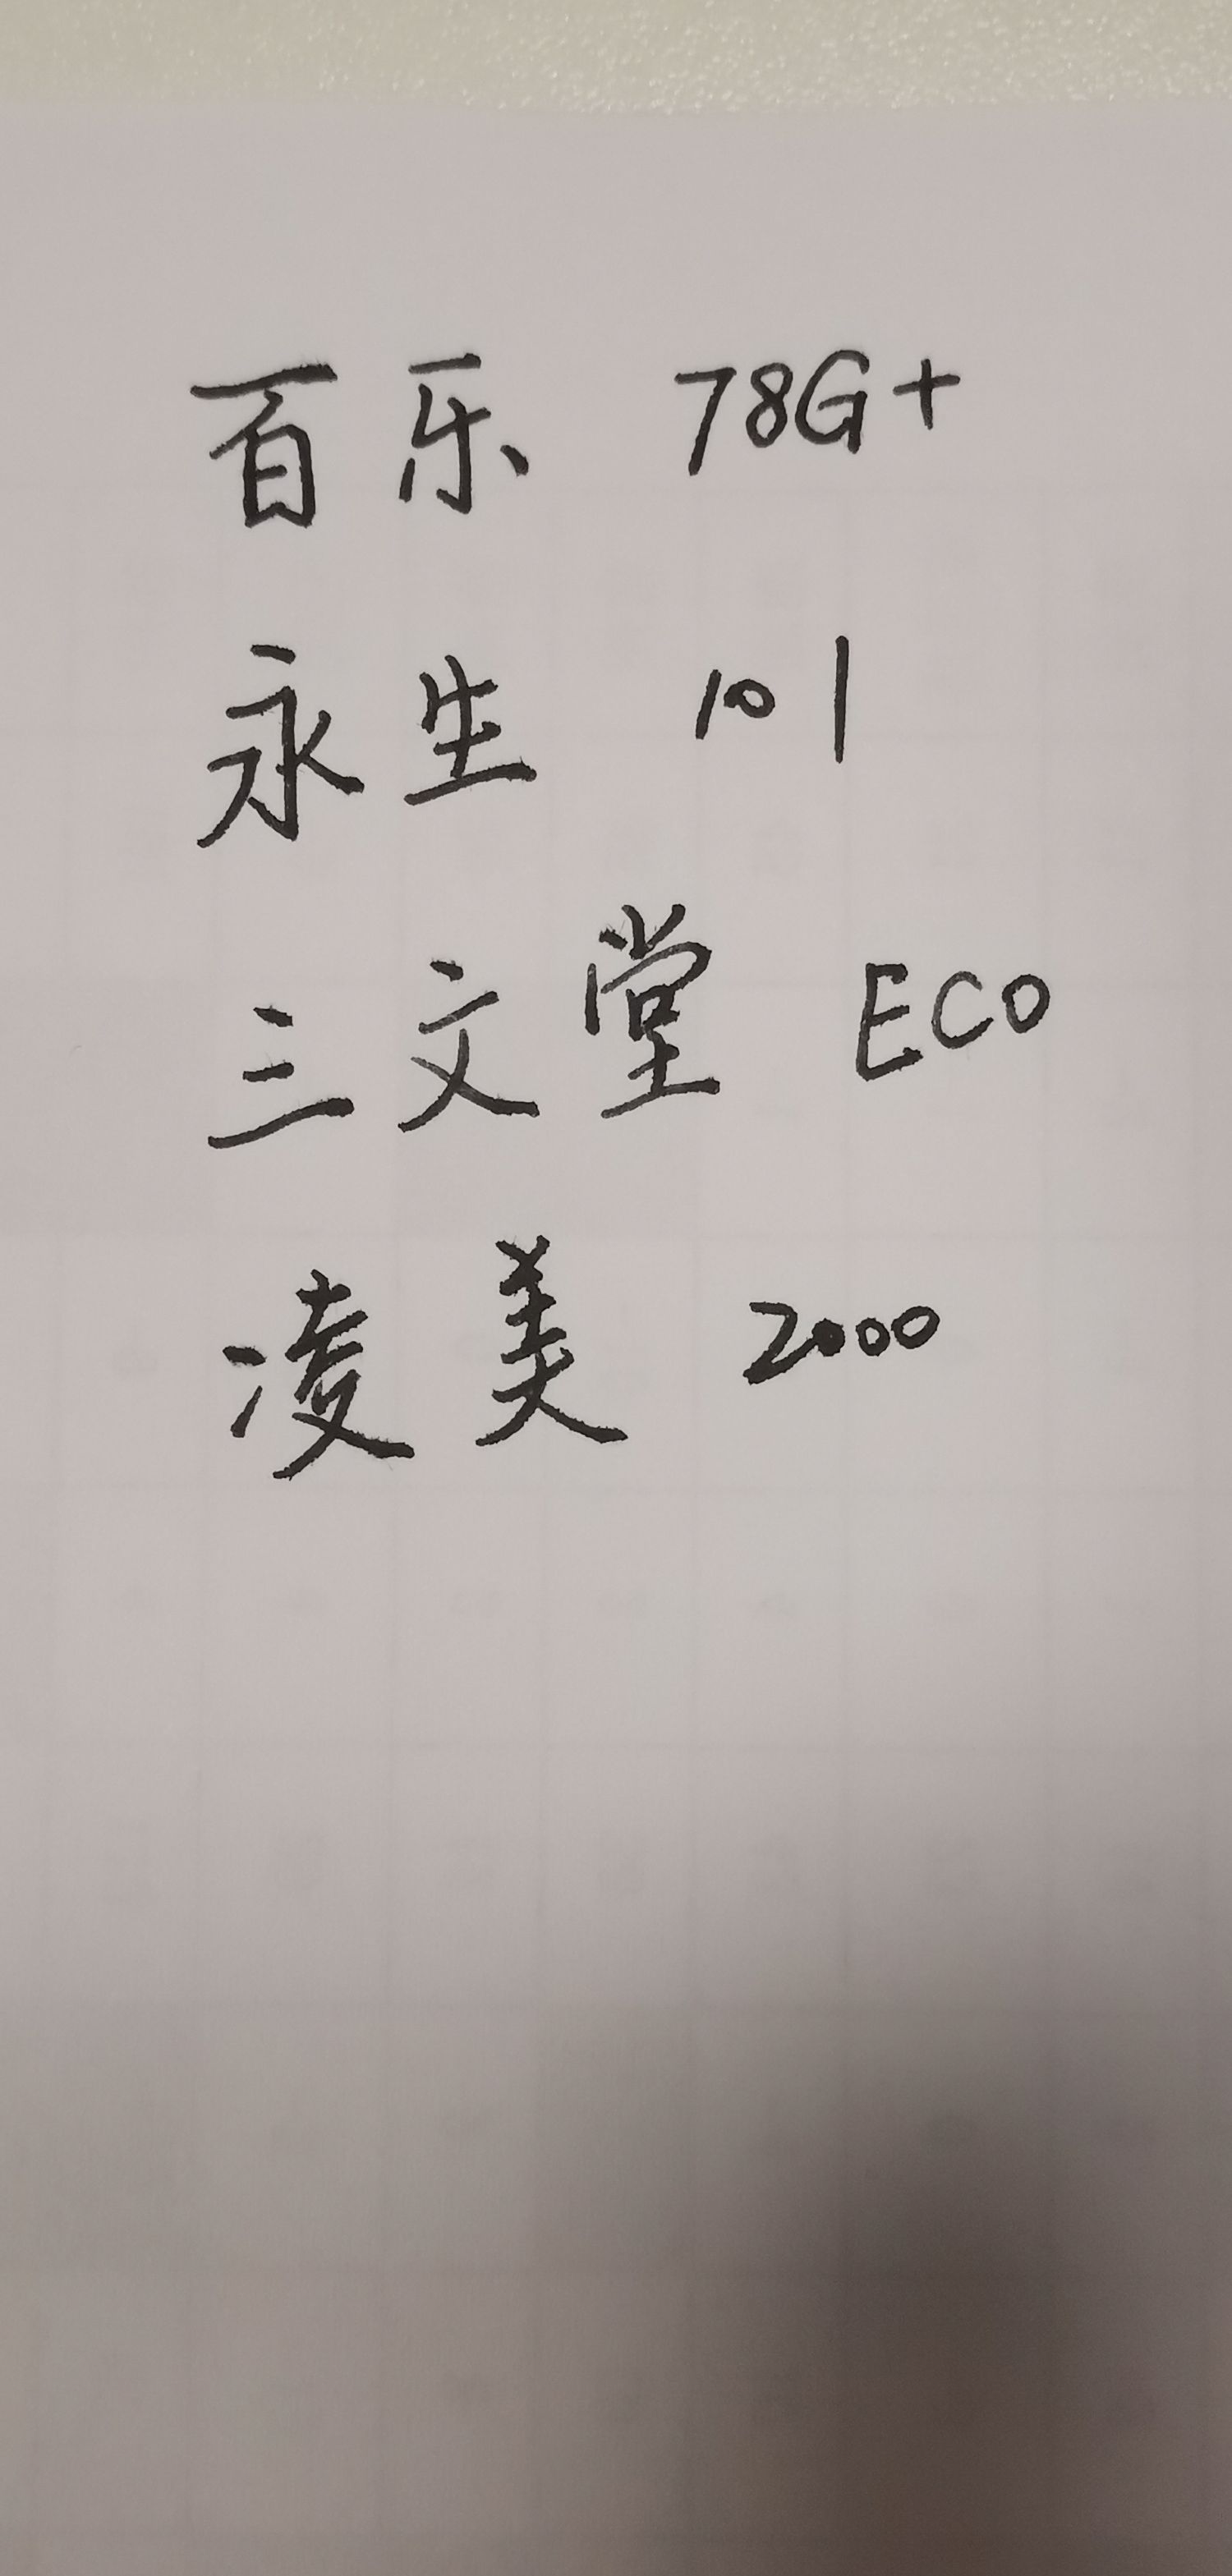 百乐 78G+
永生 101
三文堂 ECO
凌美 2000